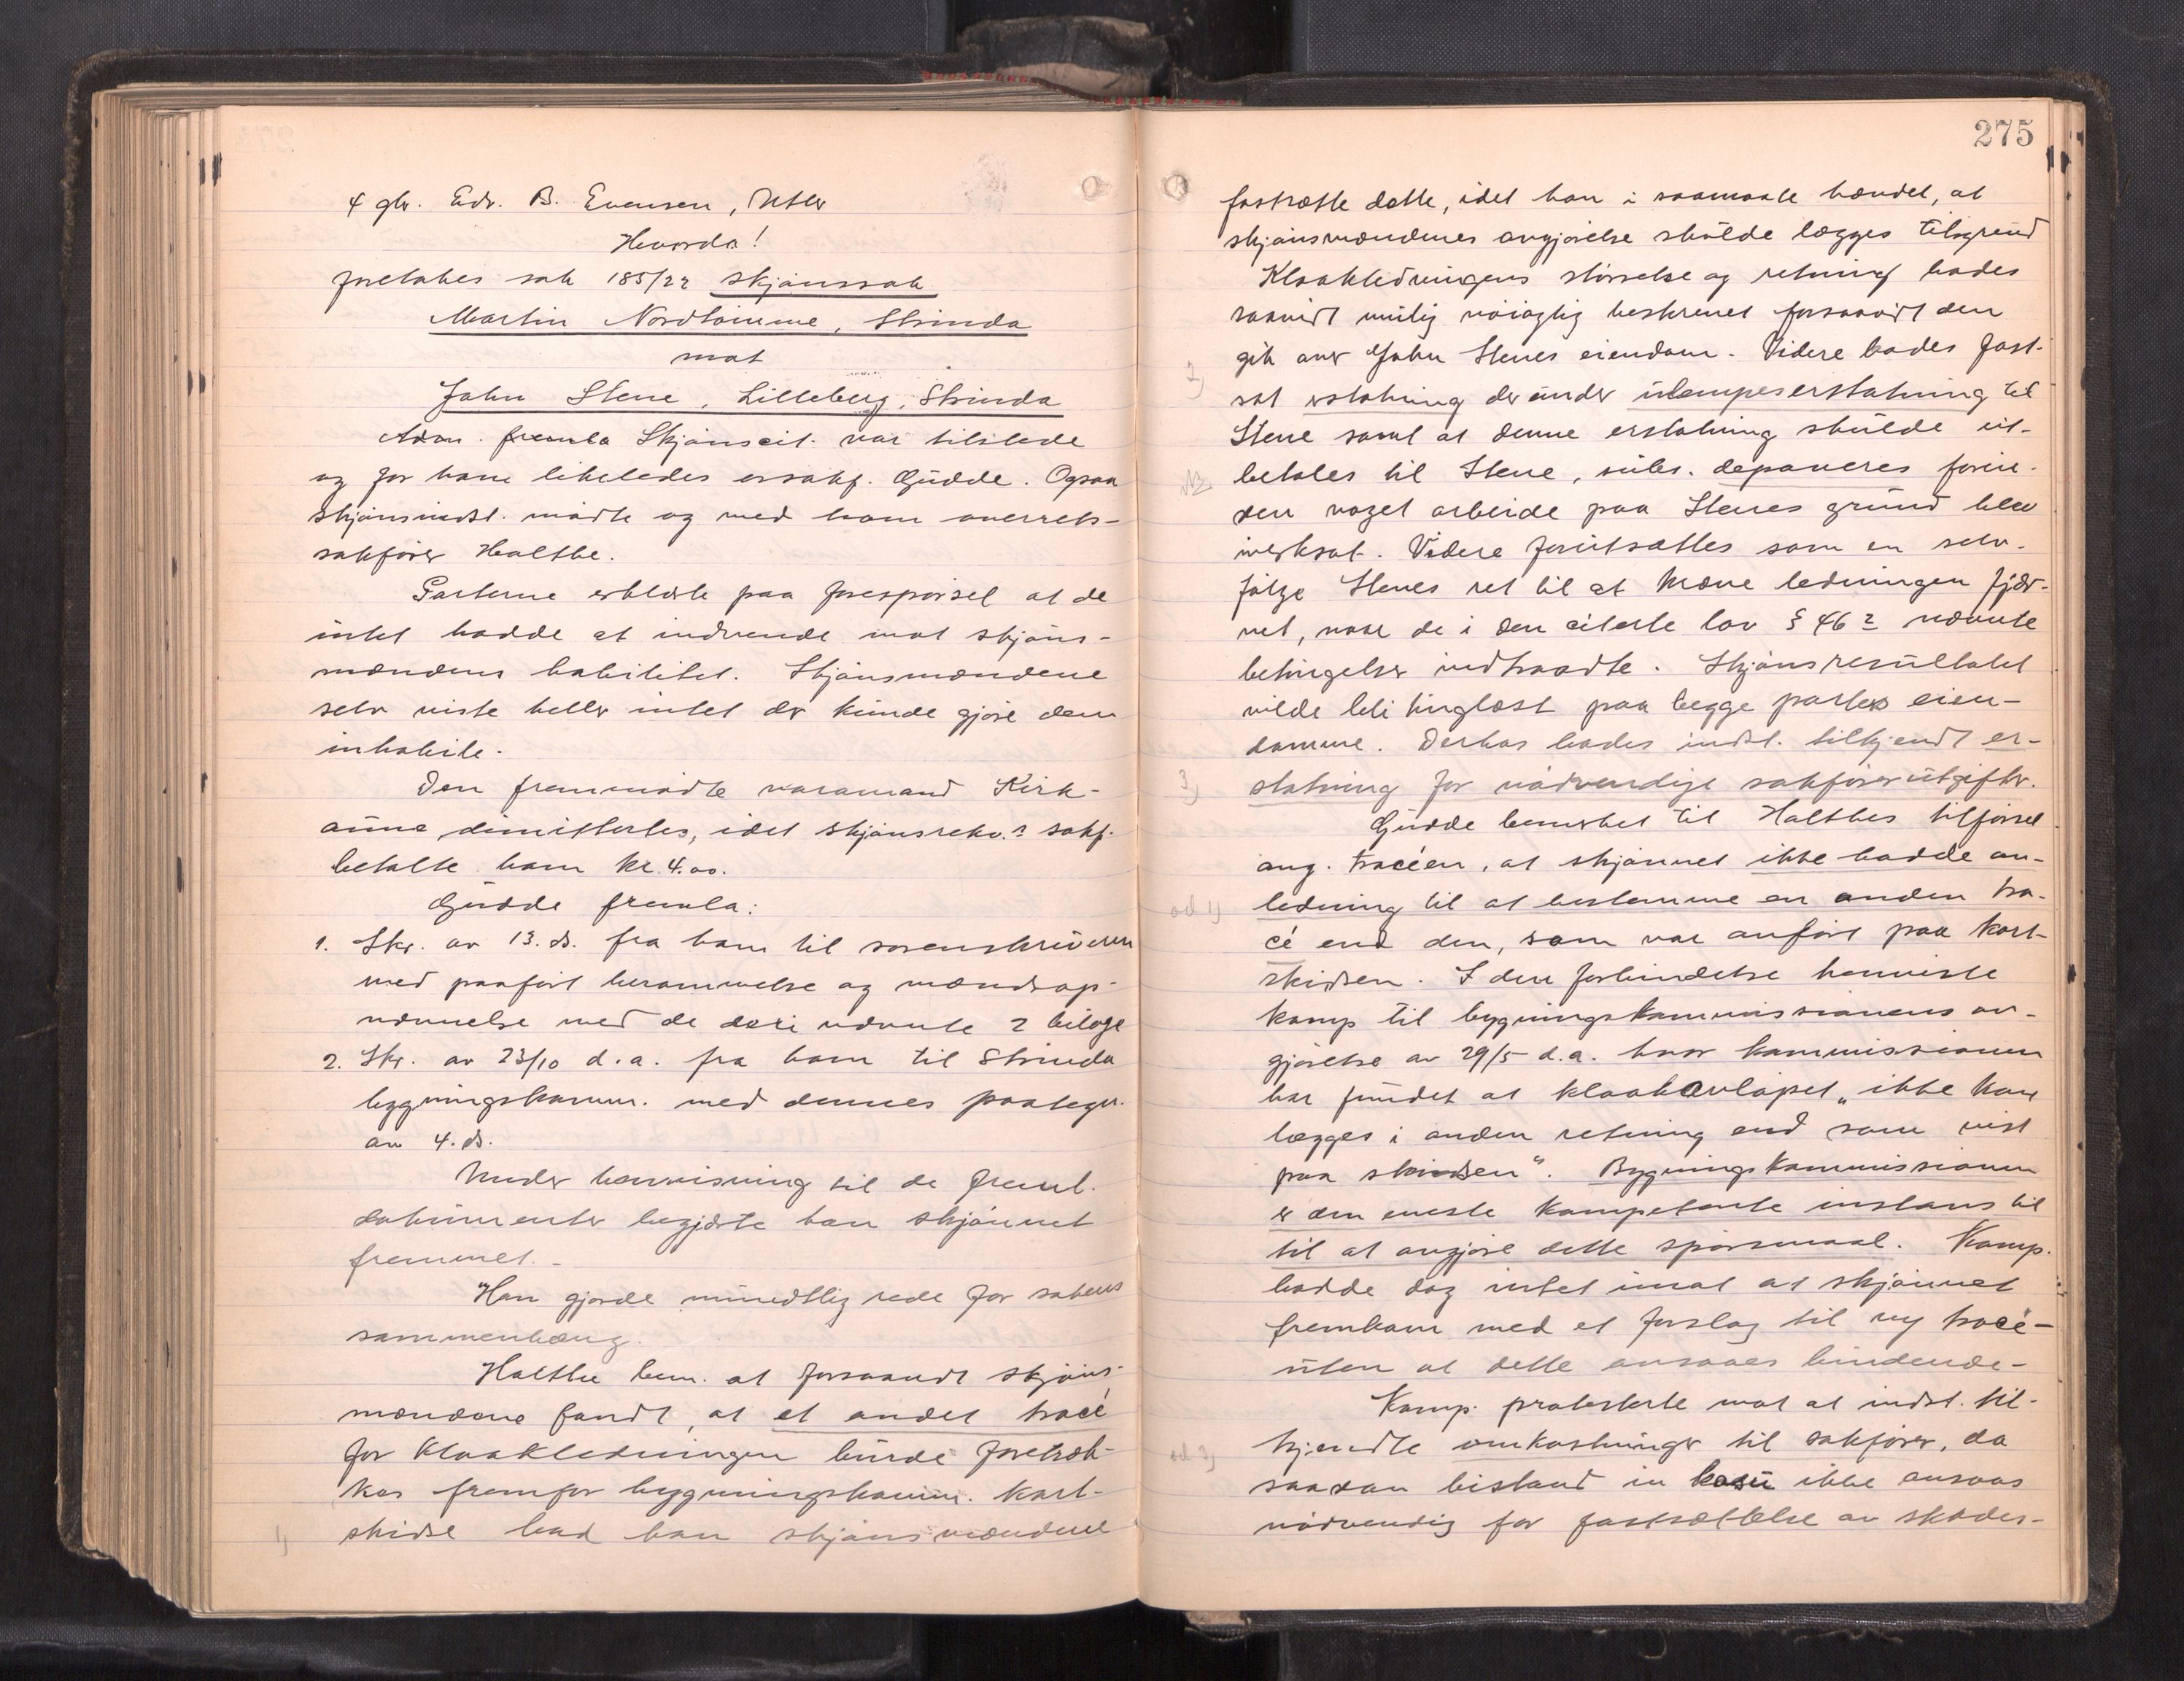 4 gbr. Edv. B. Evensen, Utler
Hvorda!
foretokes sak 185/22 skjønssak
Martin Nordtømme, Strinda
mot
John Stene, Lilleberg, Strinda
Adm. fremla Skjønscit. var tilstede
og for ham likeledes o.r.sakf. Gudde. Ogsaa
skjønsindst. møtte og med ham overrets-
sakfører Halthe.
Parterne erklærte paa forespørsel at de
intet hadde at indvende mot skjøns-
mændens habilitet. Skjønsmændene
selv viste heller intet der kunde gjøre dem
inhabile.
Den fremmødte varamand Kirk-
aune dimittertes, idet skjønsrekv.s sakf.
betalte ham kr. 4.00.
Gudde fremla:
1. Skr. av 13. ds. fra ham til sorenskriveren
med paaført berammelse og mændsop-
nævnelse med de deri nævnte 2 bilage
2. Skr. av 23/10 d.a. fra ham til Strinda
bygningskomm. med dennes paategn.
av 4. ds.
Under henvisning til de freml.
dokumenter begjærte han skjønnet
fremmet.
Han gjorde mundtlig rede for sakens
sammenhæng.
Halthe bem. at forsaavidt skjøns-
mændene fandt, at et andet tracé
for kloakledningen burde foretræk-
kes fremfor bygningskomm. kart-
1) skidse bad han skjønsmændene
275
fastsætte dette, idet han i saamaate hævdet, at
skjønsmændenes avgjørelse skulde lægges tilgrund
Kloakledningens størrelse og retning bades
saavidt mulig nøiagtig beskrevet forsaavidt den
gik over John Stenes eiendom. Videre bades fast-
2) sat erstatning derunder ulempeserstatning til
Stene samt at denne erstatning skulde ut-
NB betales til Stene, subs. deponeres forin-
den noget arbeide paa Stenes grund blev
iverksat. Videre forutsattes som en selv-
følge Stenes ret til at kræve ledningen fjær-
net, naar de i den citerte lov § 46 2 nævnte
betingelser indtraadte. Skjønsresultatet
vilde bli tinglæst paa begge parters eien-
domme. Derhos bades indst. tilkjendt er-
3) statning for nødvendige sakførerutgifter.
Gudde bemerket til Halthes tilførsel
ang. tracéen, at skjønnet ikke hadde an-
ad 1) ledning til at bestemme en anden tra-
cé end den, som var anført paa kart-
skidsen. I den forbindelse henviste
komp til bygningskommissionens av-
gjørelse av 29/5 d.a. hvor kommissionen
har fundet at kloakavløpet „ikke kan
lægges i anden retning end som vist
paa skidsen“. Bygningskommissionen
er den eneste kompetente instans til
til at avgjøre dette spørsmaal. Komp.
hadde dog intet imot at skjønnet
fremkom med et forslag til ny tracé -
uten at dette ansaaes bindende -
Komp. protesterte mot at indst. til-
ad 3) kjendte omkostninger til sakfører, da
saadan bistand in casu ikke ansaas
nødvendig for fastsættelse av skades-